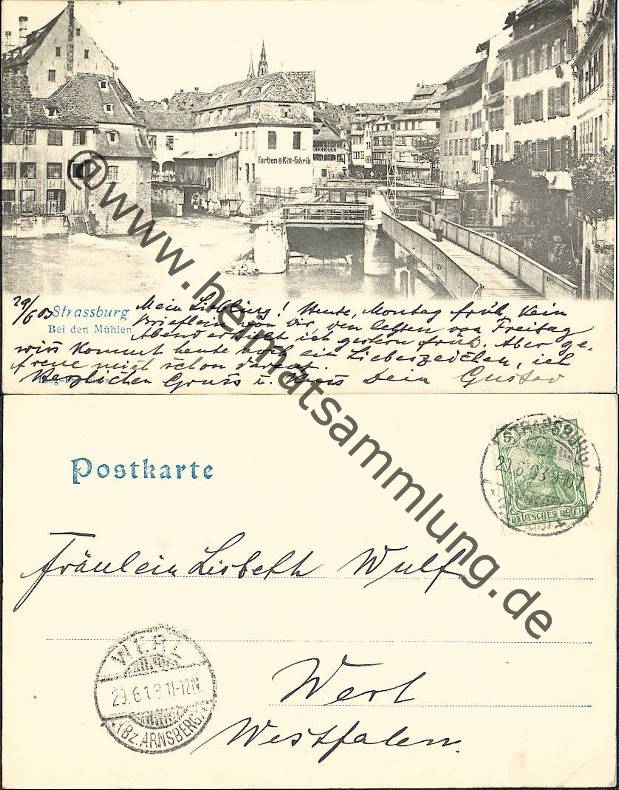 Farben & Kitt-Fabrik
29/6 03 Strassburg
Bei den Mühlen
Mein Liebling! Heute, Montag früh kein
Brieflein von Dir, den letzten von Freitag
Abend erhielt ich gestern früh. Aber ge-
wiss kommt heute noch ein Liebeszedlen, ich
freue mich schon darauf.
Herzlichen Gruss u. Kuss Dein Gustav
www.heimatsammlung.de
Postkarte
STRASSBURG
DEUTSCHES REICH
Fräulein Lisbeth Wulf
WERL
29.6.03 11-12N.
(Bz. ARNSBERG)
Werl
Westfalen.